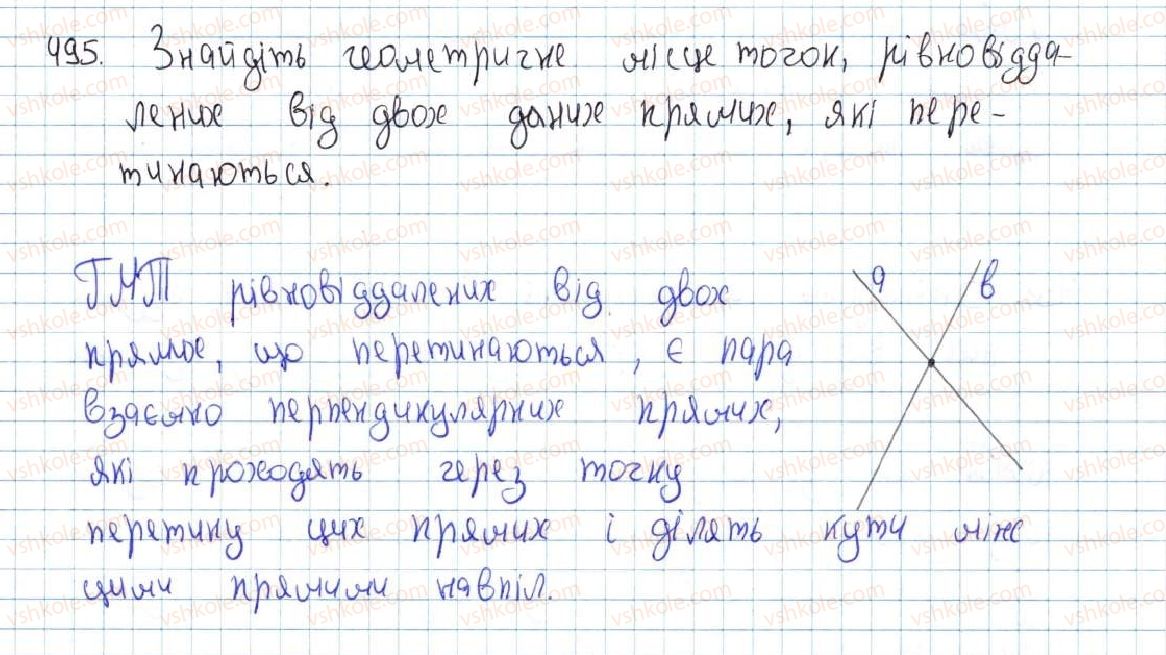 495. Знайдіть геометричне місце точок, рівновідда-
лених від двох даних прямих, які пере-
тинаються.
ГМТ рівновіддалених від двох
прямих, що перетинаються, є пара
взаємно перпендикулярних прямих,
які проходять через точку
перетину цих прямих і ділять кути між
цими прямими навпіл.
a
b
vshkole.com